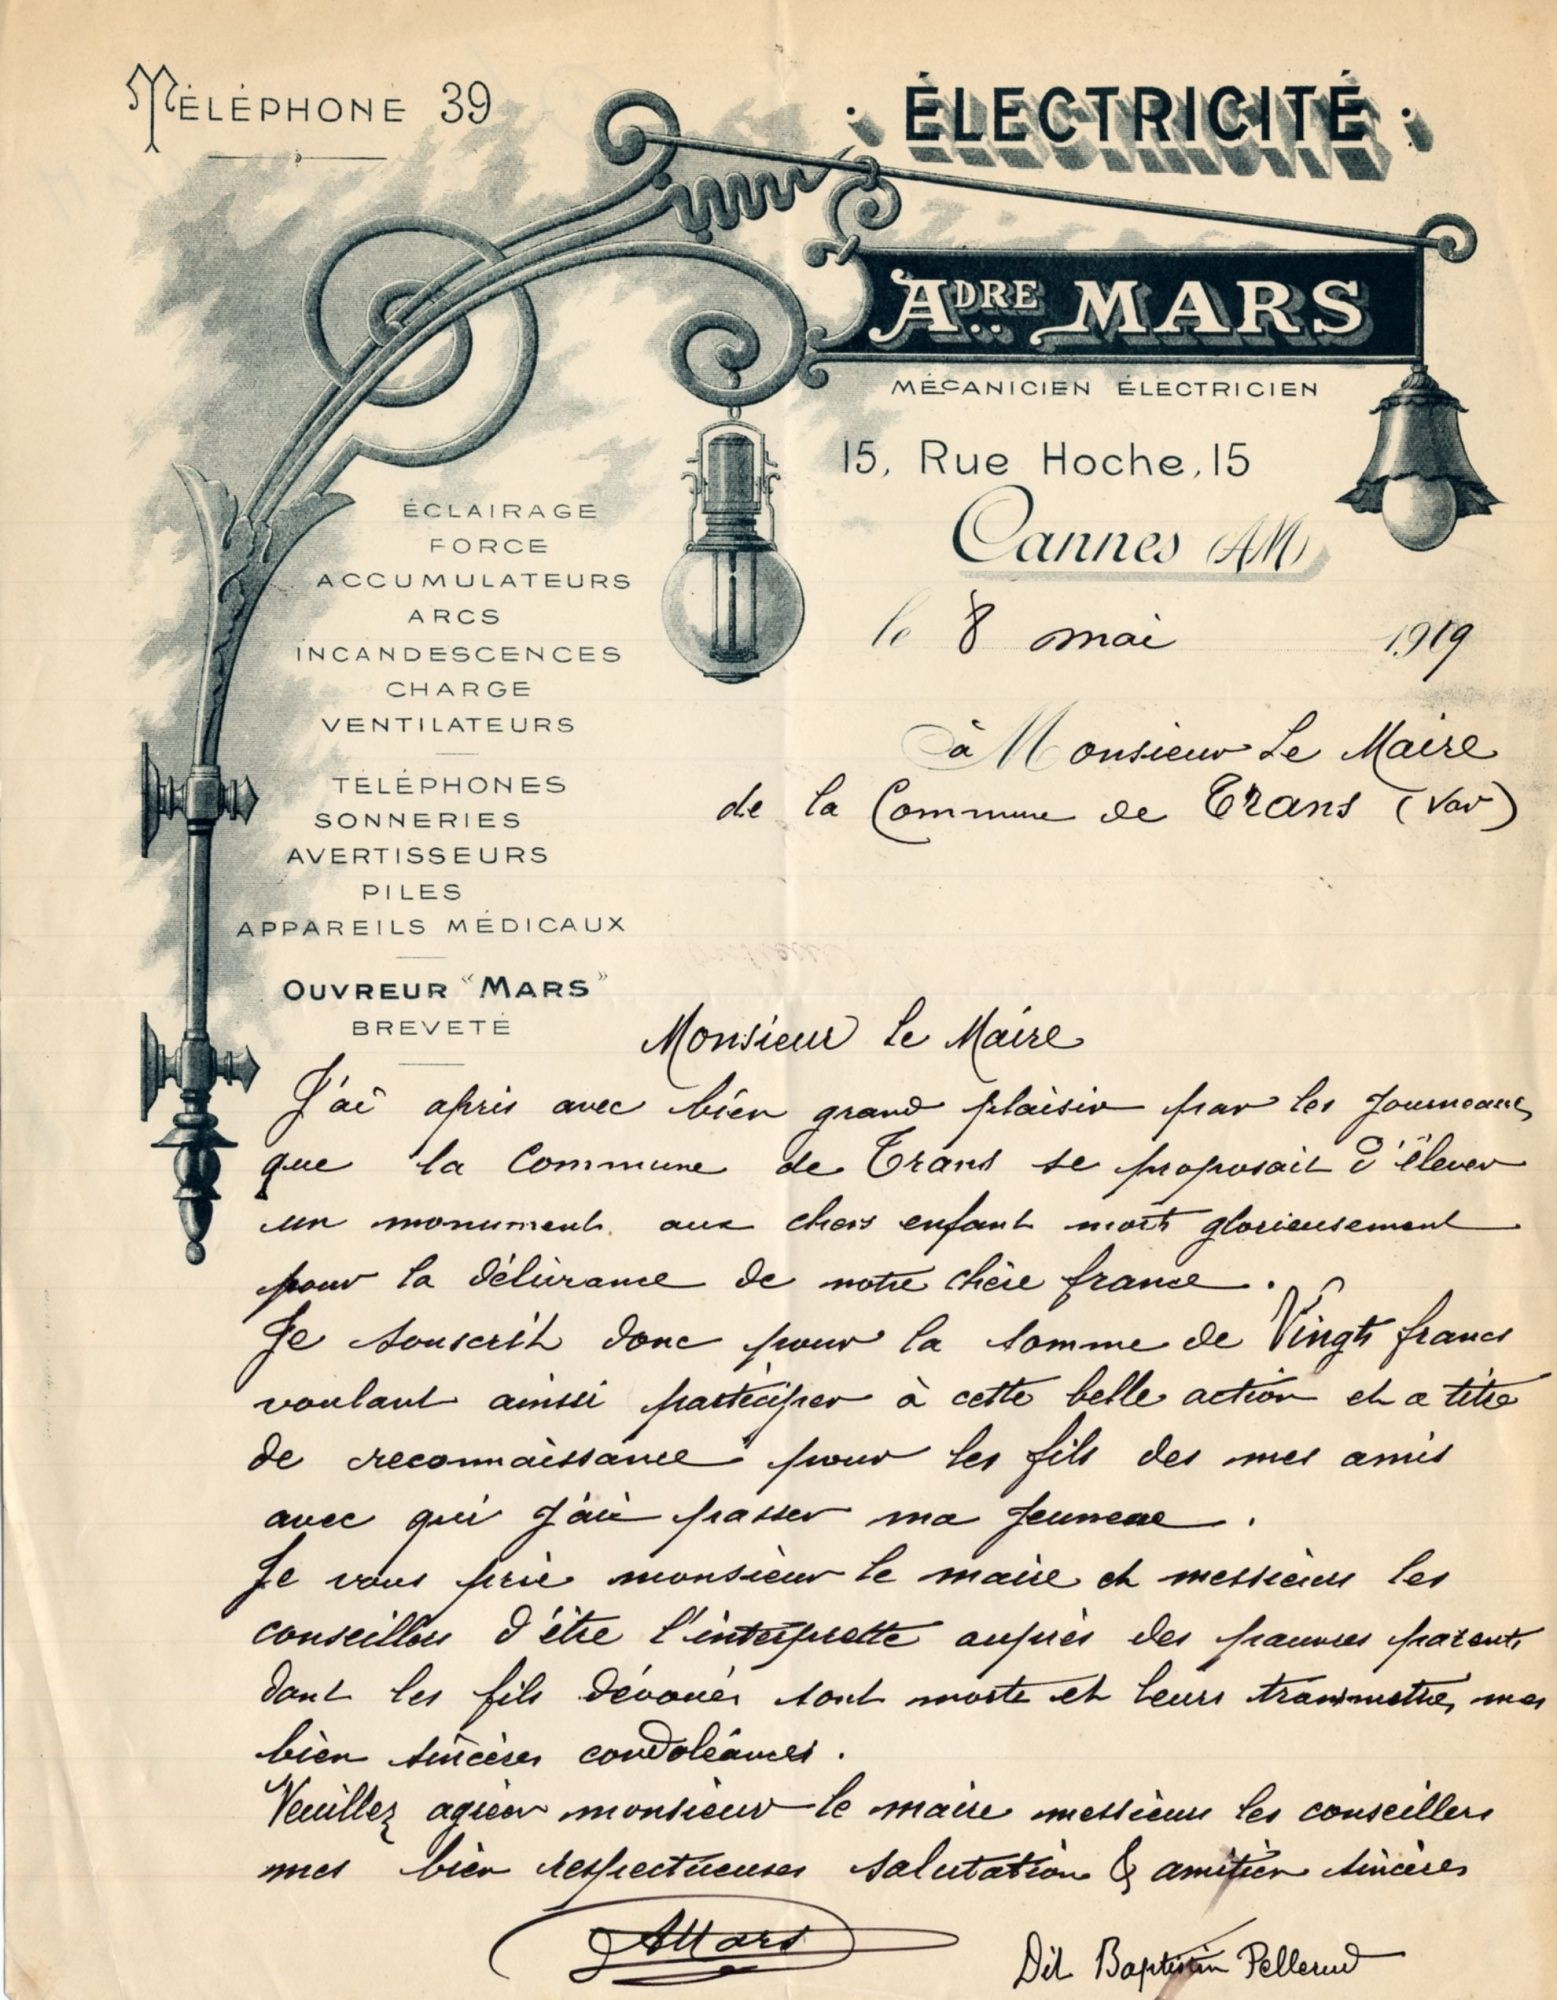 TÉLÉPHONE 39
· ÉLECTRICITÉ ·
ADRE MARS
MÉCANICIEN ÉLECTRICIEN
15, Rue Hoche, 15
Cannes (AM)
le 8 mai 1919
ÉCLAIRAGE
FORCE
ACCUMULATEURS
ARCS
INCANDESCENCES
CHARGE
VENTILATEURS
TÉLÉPHONES
SONNERIES
AVERTISSEURS
PILES
APPAREILS MÉDICAUX
OUVREUR "MARS"
BREVETÉ
à Monsieur Le Maire
de la Commune de Trans (Var)
Monsieur Le Maire
J'ai apris avec bien grand plaisir par les Journeaux
que la Commune de Trans se proposait d'élever
un monument aux chers enfant mort glorieusement
pour la délivrance de notre chère france.
Je souscrit donc pour la somme de Vingt francs
voulant ainssi participer à cette belle action et a titre
de reconnaissance pour les fils des mes amis
avec qui j'ai passer ma Jeunesse.
Je vous prie monsieur le maire et messieurs les
conseillers d'être l'interprette auprès des pauvres parents
dont les fils dévoués sont morts et leurs transmettre mes
bien sincères condoléances.
Veuillez agréer monsieur le maire messieurs les conseillers
mes bien respectueuses salutation & amitiér sincères
AMars
Dit Baptistin Pellerud